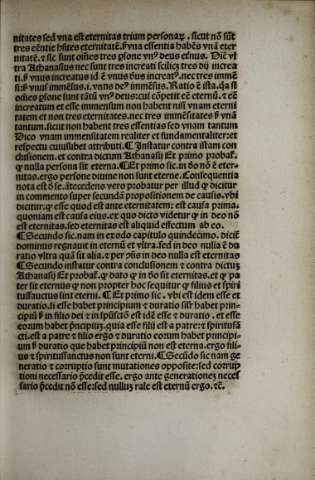 nitates sed vna est eternitas trium personaꝝ. sicut nō sūt
tres eētie hn̄tes eternitatē. ꝓ vna essentia habēs vnā eter
nitatē. ⁊ sic sunt oīnes tres ꝑsone vnꝰ deus et̄nus. Dic̄
tra Athanasius nec sunt tres increati scilicꝫ tres dij increa
ti. ꝓ vnus increatus id ē vnus deus increatꝰ. nec tres immē
si: ꝓ vnus immēsus. i. vnus deꝰ immēsus. Ratio ē ista. qꝛ si
oēs ꝑsone sunt tātū vnꝰ deus: cui cōpetit eē eternū. ⁊ eē
increatum et esse immensum non habent nisi vnam eterni
tatem et non tres eternitates. nec tres immēsitates ꝓ vnā
tantum. sicut non habent tres essentias seo vnam tantum
Dico vnam immensitatem realiter et fundamentaliter: et
respectu cuiuslibet attributi. ¶ Instatur contra istam con
clusionem. et contra dictum Athanasij. Et primo probaꝶ.
ꝙ nulla persona sit eterna. ¶ Et primo sic. in dō nō ē eter-
nitas. ergo persone diuine non sunt eterne. Consequentia
nota est dō se. ātecedens vero probatur per illud ꝙ dicitur
in commento super secundā propositionem de causis. vbi
dicitur. ꝙ esse quod est ante eternitatem: est causa prima.
quoniam est causa eius. ex quo dicto videtur ꝙ in deo nō
est eternitas. sed eternitas est aliquid effectum ab eo.
¶ Secundo sic. nam in exodo capitulo quindecimo. dicit̄
dominus regnauit in eternū et vltra. sed in deo nulla ē du
ratio vltra quā sit alia. ⁊ per ꝯns in deo nulla est eternitas
¶ Secundo instatur contra conclusionem ⁊ contra dictuꝫ
Athanasij Et probaꝶ. ꝙ dato ꝙ in dō sit eternitas. et ꝙ pa
ter sit eternus ꝙ non propter hoc sequitur ꝙ filius et spiri
tussanctus sint eterni. ¶ Et primo sic. vbi est idem esse et
duratio. si esse habet principium ⁊ duratio sīlr habet prin-
cipiū ꝓ in filio dei ⁊ in spūsctō est idē esse ⁊ duratio. et esse
eorum habent pncipiuꝫ. quia esse filij est a patre: ⁊ spiritussā
cti. est a patre ⁊ filio ergo ⁊ duratio eorum habet principi-
um ꝓ duratio que habet principiū non est eterna. ergo fili-
us ⁊ spiritussanctus non sunt eterni. ¶ Secūdo sic nam ge
neratio ⁊ corruptio sunt mutationes opposite: sed corrup
tioni necessario p̄cedit esse. ergo ante generationeꝫ neces
sario p̄cedit nō esse: sed nulluꝫ tale est eternū ergo. ⁊c̄.